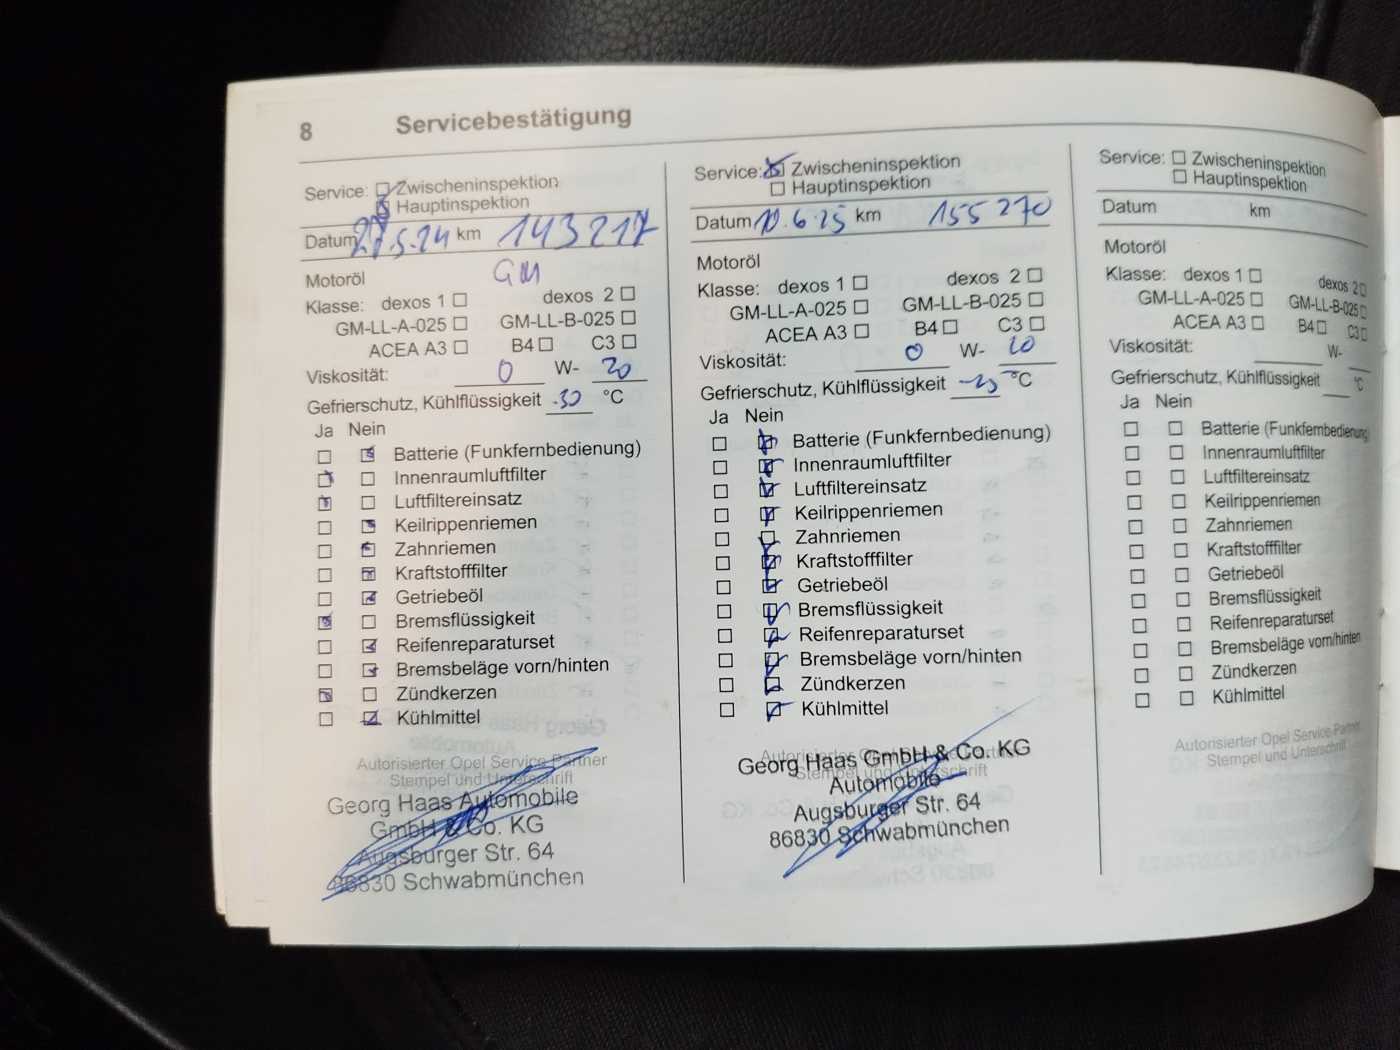 8 Servicebestätigung
Service: Zwischeninspektion
Hauptinspektion
Datum 27.5.24 km 143217
Motoröl GM
Klasse: dexos 1 dexos 2
GM-LL-A-025 GM-LL-B-025
ACEA A3 B4 C3
Viskosität: 0 W- 20
Gefrierschutz, Kühlflüssigkeit -30 °C
Ja Nein
Batterie (Funkfernbedienung)
Innenraumluftfilter
Luftfiltereinsatz
Keilrippenriemen
Zahnriemen
Kraftstofffilter
Getriebeöl
Bremsflüssigkeit
Reifenreparaturset
Bremsbeläge vorn/hinten
Zündkerzen
Kühlmittel
Autorisierter Opel Service Partner
Stempel und Unterschrift
Georg Haas Automobile
GmbH & Co. KG
Augsburger Str. 64
86830 Schwabmünchen
Service: Zwischeninspektion
Hauptinspektion
Datum 10.6.25 km 155270
Motoröl
Klasse: dexos 1 dexos 2
GM-LL-A-025 GM-LL-B-025
ACEA A3 B4 C3
Viskosität: 0 W- 20
Gefrierschutz, Kühlflüssigkeit -25 °C
Ja Nein
Batterie (Funkfernbedienung)
Innenraumluftfilter
Luftfiltereinsatz
Keilrippenriemen
Zahnriemen
Kraftstofffilter
Getriebeöl
Bremsflüssigkeit
Reifenreparaturset
Bremsbeläge vorn/hinten
Zündkerzen
Kühlmittel
Autorisierter Opel Service Partner
Stempel und Unterschrift
Georg Haas GmbH & Co. KG
Automobile
Augsburger Str. 64
86830 Schwabmünchen
Service: Zwischeninspektion
Hauptinspektion
Datum km
Motoröl
Klasse: dexos 1 dexos 2
GM-LL-A-025 GM-LL-B-025
ACEA A3 B4 C3
Viskosität: W-
Gefrierschutz, Kühlflüssigkeit °C
Ja Nein
Batterie (Funkfernbedienung)
Innenraumluftfilter
Luftfiltereinsatz
Keilrippenriemen
Zahnriemen
Kraftstofffilter
Getriebeöl
Bremsflüssigkeit
Reifenreparaturset
Bremsbeläge vorn/hinten
Zündkerzen
Kühlmittel
Autorisierter Opel Service Partner
Stempel und Unterschrift